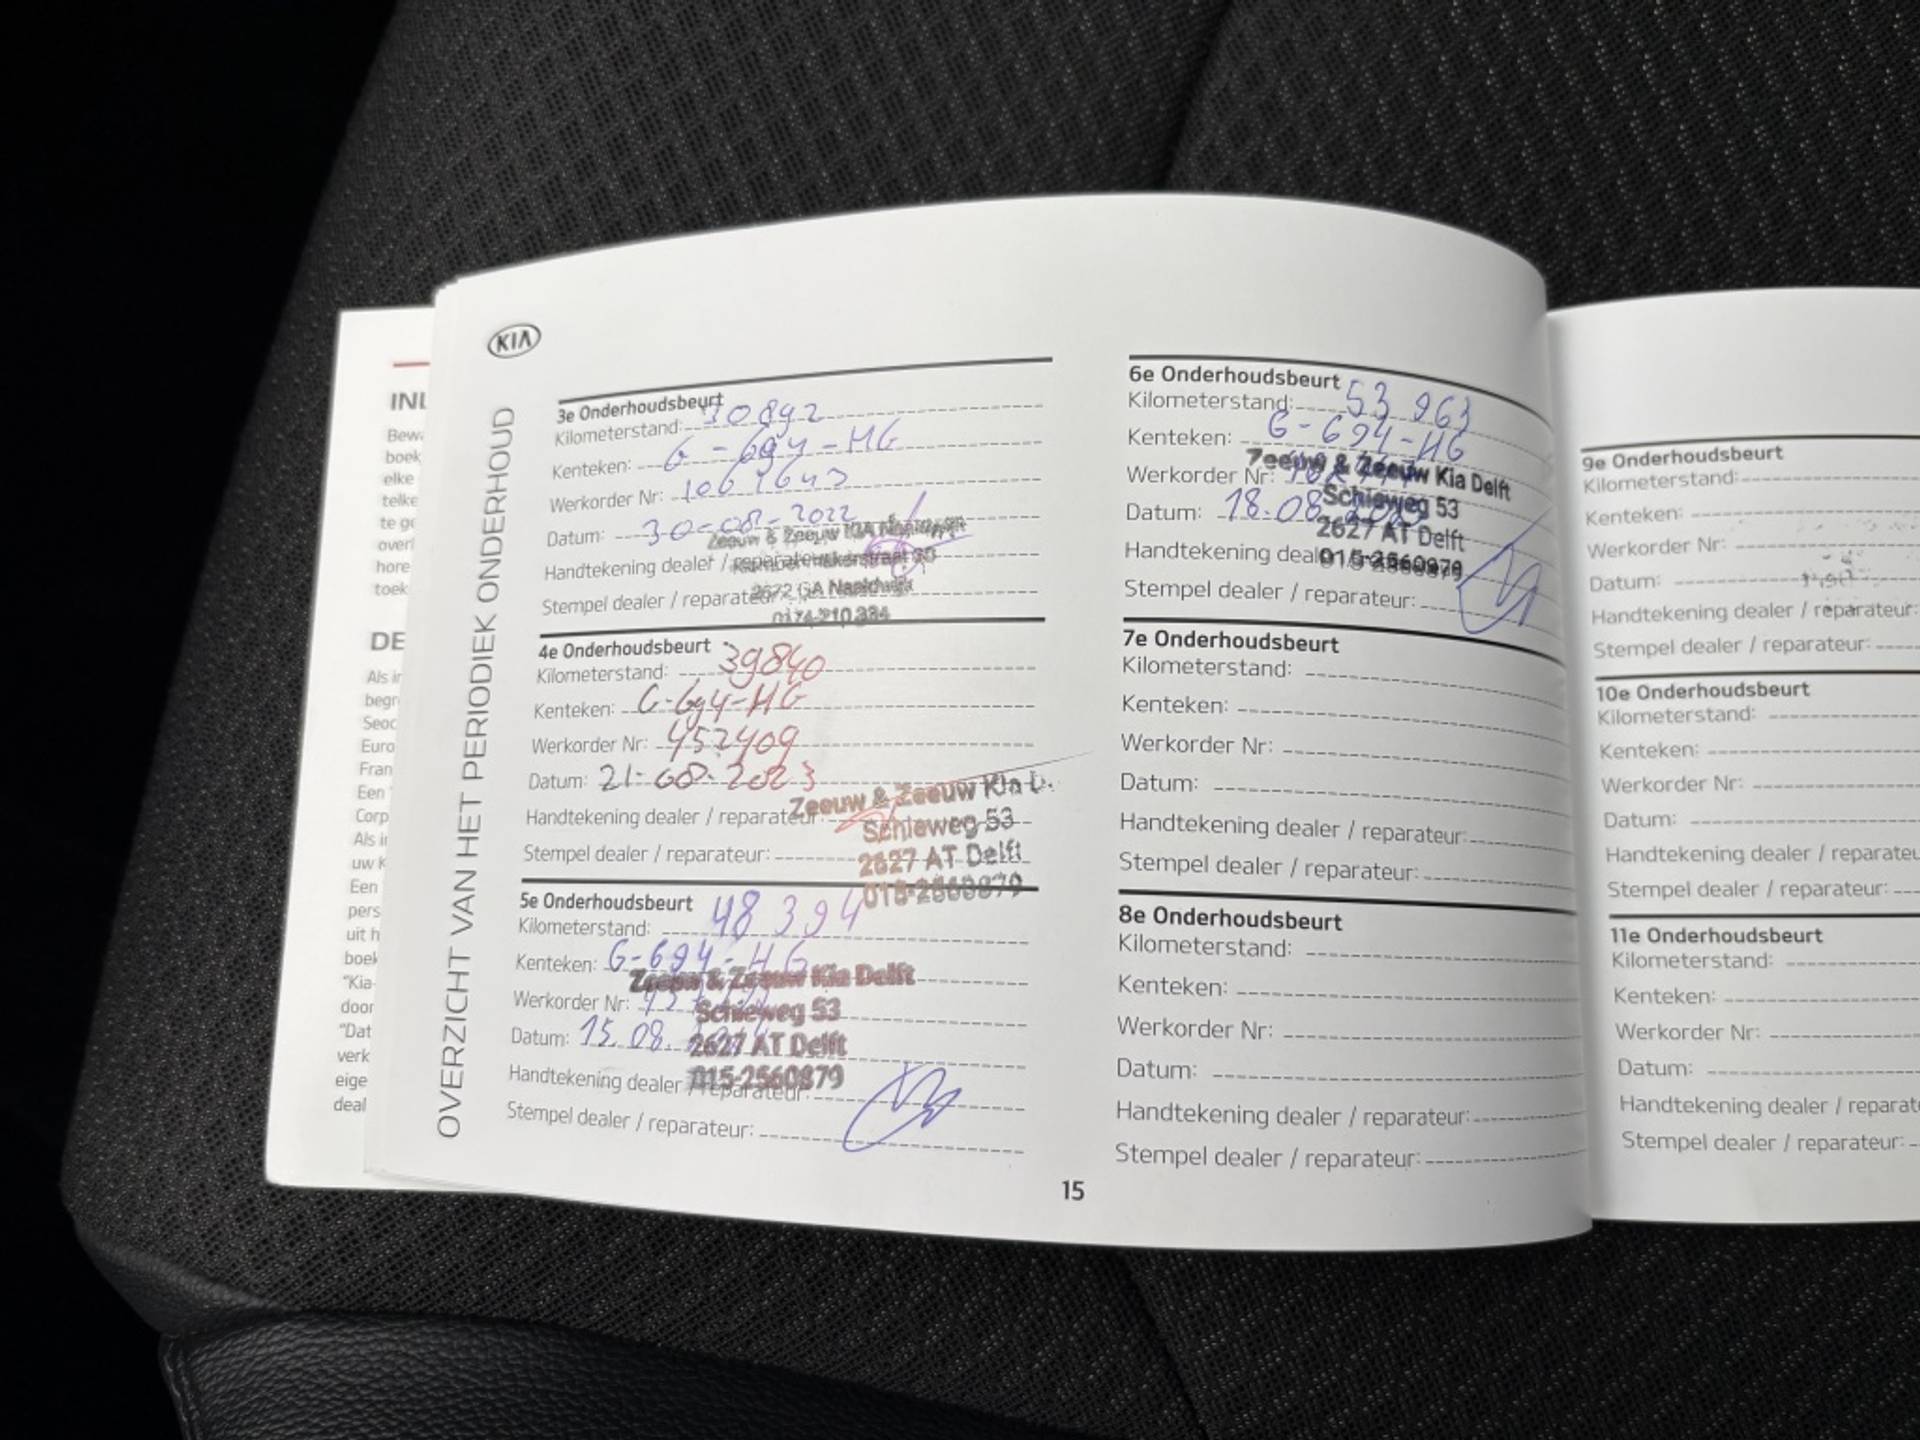 KIA
OVERZICHT VAN HET PERIODIEK ONDERHOUD
3e Onderhoudsbeurt
Kilometerstand: 30892
Kenteken: G-694-HG
Werkorder Nr:
Datum: 30-08-2022
Handtekening dealer /
Stempel dealer / reparateur:
Zeeuw & Zeeuw KIA
2672 GA Naaldwijk
0174-210 334
4e Onderhoudsbeurt
Kilometerstand: 39840
Kenteken: G-694-HG
Werkorder Nr: 452409
Datum: 21-08-2023
Handtekening dealer / reparateur:
Stempel dealer / reparateur:
Zeeuw & Zeeuw Kia D
Schieweg 53
2627 AT Delft
015-2560879
5e Onderhoudsbeurt
Kilometerstand: 48394
Kenteken: G-694-HG
Werkorder Nr:
Datum: 15.08.
Handtekening dealer / reparateur:
Stempel dealer / reparateur:
Zeeuw & Zeeuw Kia Delft
Schieweg 53
2627 AT Delft
015-2560879
6e Onderhoudsbeurt
Kilometerstand: 53963
Kenteken: G-694-HG
Werkorder Nr:
Datum: 18.08.
Handtekening
Stempel dealer / reparateur:
Zeeuw & Zeeuw Kia Delft
Schieweg 53
2627 AT Delft
015-2560879
7e Onderhoudsbeurt
Kilometerstand:
Kenteken:
Werkorder Nr:
Datum:
Handtekening dealer / reparateur:
Stempel dealer / reparateur:
8e Onderhoudsbeurt
Kilometerstand:
Kenteken:
Werkorder Nr:
Datum:
Handtekening dealer / reparateur:
Stempel dealer / reparateur:
15
9e Onderhoudsbeurt
Kilometerstand:
Kenteken:
Werkorder Nr:
Datum:
Handtekening dealer / reparateur:
Stempel dealer / reparateur:
10e Onderhoudsbeurt
Kilometerstand:
Kenteken:
Werkorder Nr:
Datum:
Handtekening dealer / reparateu
Stempel dealer / reparateur:
11e Onderhoudsbeurt
Kilometerstand:
Kenteken:
Werkorder Nr:
Datum:
Handtekening dealer / reparat
Stempel dealer / reparateur: